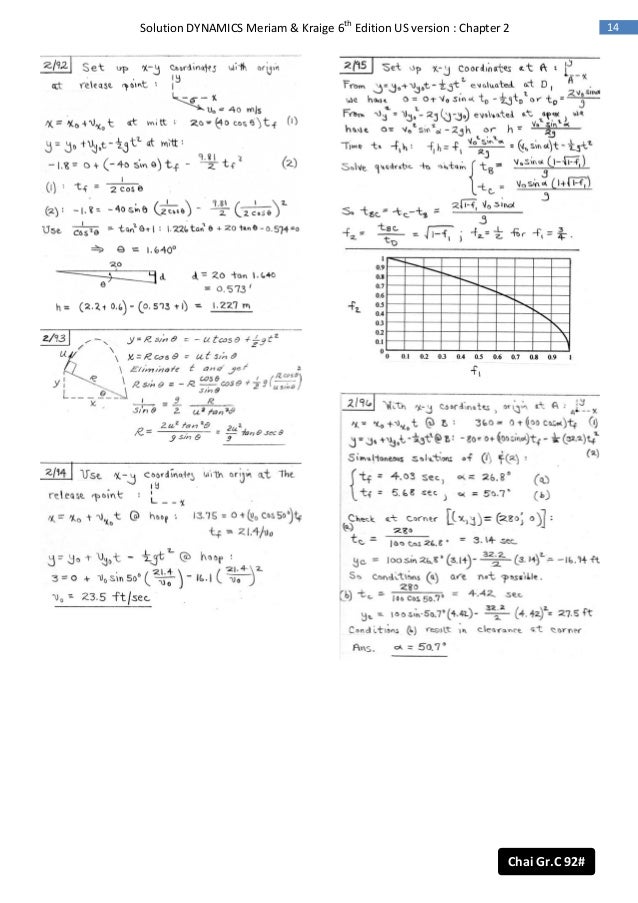 Solution DYNAMICS Meriam & Kraige 6th Edition US version : Chapter 2
14
2/92 Set up x-y coordinates with origin
at release point :
y
x
θ
v₀ = 40 m/s
x = x₀ + vx₀ t at mitt : 20 = (40 cos θ) tf (1)
y = y₀ + vy₀ t - ½gt² at mitt :
-1.8 = 0 + (-40 sin θ) tf - 9.81/2 tf² (2)
(1) : tf = 1/(2 cos θ)
(2) : -1.8 = -40 sin θ (1/(2 cos θ)) - 9.81/2 (1/(2 cos θ))²
Use 1/cos²θ = tan²θ + 1 : 1.226 tan²θ + 20 tan θ - 0.574 = 0
⇒ θ = 1.640°
20
d
d = 20 tan 1.640
= 0.573'
h = (2.2 + 0.6) - (0.573 + 1) = 1.227 m
2/93
u
y
R
θ
x
y = R sin θ = - ut cos θ + ½gt²
x = R cos θ = ut sin θ
Eliminate t and get
R sin θ = - R cos θ/sin θ cos θ + ½g (R cos θ/(u sin θ))²
1/sin θ = g/2 R/(u² tan²θ)
R = 2u² tan²θ/(g sin θ) = 2u²/g tan θ sec θ
2/94 Use x-y coordinates with origin at the
release point :
y
x
x = x₀ + vx₀ t @ hoop : 13.75 = 0 + (v₀ cos 50°) tf
tf = 21.4/v₀
y = y₀ + vy₀ t - ½gt² @ hoop :
3 = 0 + v₀ sin 50° (21.4/v₀) - 16.1 (21.4/v₀)²
v₀ = 23.5 ft/sec
2/95 Set up x-y coordinates at A :
y
A - x
From y = y₀ + vy₀ t - ½gt² evaluated at D,
we have 0 = 0 + v₀ sin α tD - ½gtD² or tD = 2v₀ sin α/g
From vy² = vy₀² - 2g(y-y₀) evaluated at apex, we
have 0² = v₀² sin²α - 2gh or h = v₀² sin²α/2g
Time to f₁h : f₁h = f₁ v₀² sin²α/2g = (v₀ sin α)t - ½gt²
Solve quadratic to obtain
tB = v₀ sin α (1-√(1-f₁))/g
tC = v₀ sin α (1+√(1-f₁))/g
So tBC = tC - tB = 2√(1-f₁) v₀ sin α/g
f₂ = tBC/tD = √(1-f₁) ; f₂ = ½ for f₁ = ¾.
1
0.9
0.8
0.7
0.6
0.5
0.4
0.3
0.2
0.1
0
f₂
0 0.1 0.2 0.3 0.4 0.5 0.6 0.7 0.8 0.9 1
f₁
2/96 With x-y coordinates, origin at A :
y
A - - x
x = x₀ + vx₀ t @ B : 360 = 0 + (100 cos α) tf (1)
y = y₀ + vy₀ t - ½gt² @ B : -80 = 0 + (100 sin α) tf - ½ (32.2) tf²
(2)
Simultaneous solutions of (1) & (2) :
tf = 4.03 sec, α = 26.8° (a)
tf = 5.68 sec, α = 50.7° (b)
Check at corner [(x,y) = (280, 0)] :
(a) tc = 280/(100 cos 26.8°) = 3.14 sec
yc = 100 sin 26.8° (3.14) - 32.2/2 (3.14)² = -16.94 ft
So conditions (a) are not possible.
(b) tc = 280/(100 cos 50.7°) = 4.42 sec
yc = 100 sin 50.7° (4.42) - 32.2/2 (4.42)² = 27.5 ft
Conditions (b) result in clearance at corner
Ans. α = 50.7°
Chai Gr.C 92#